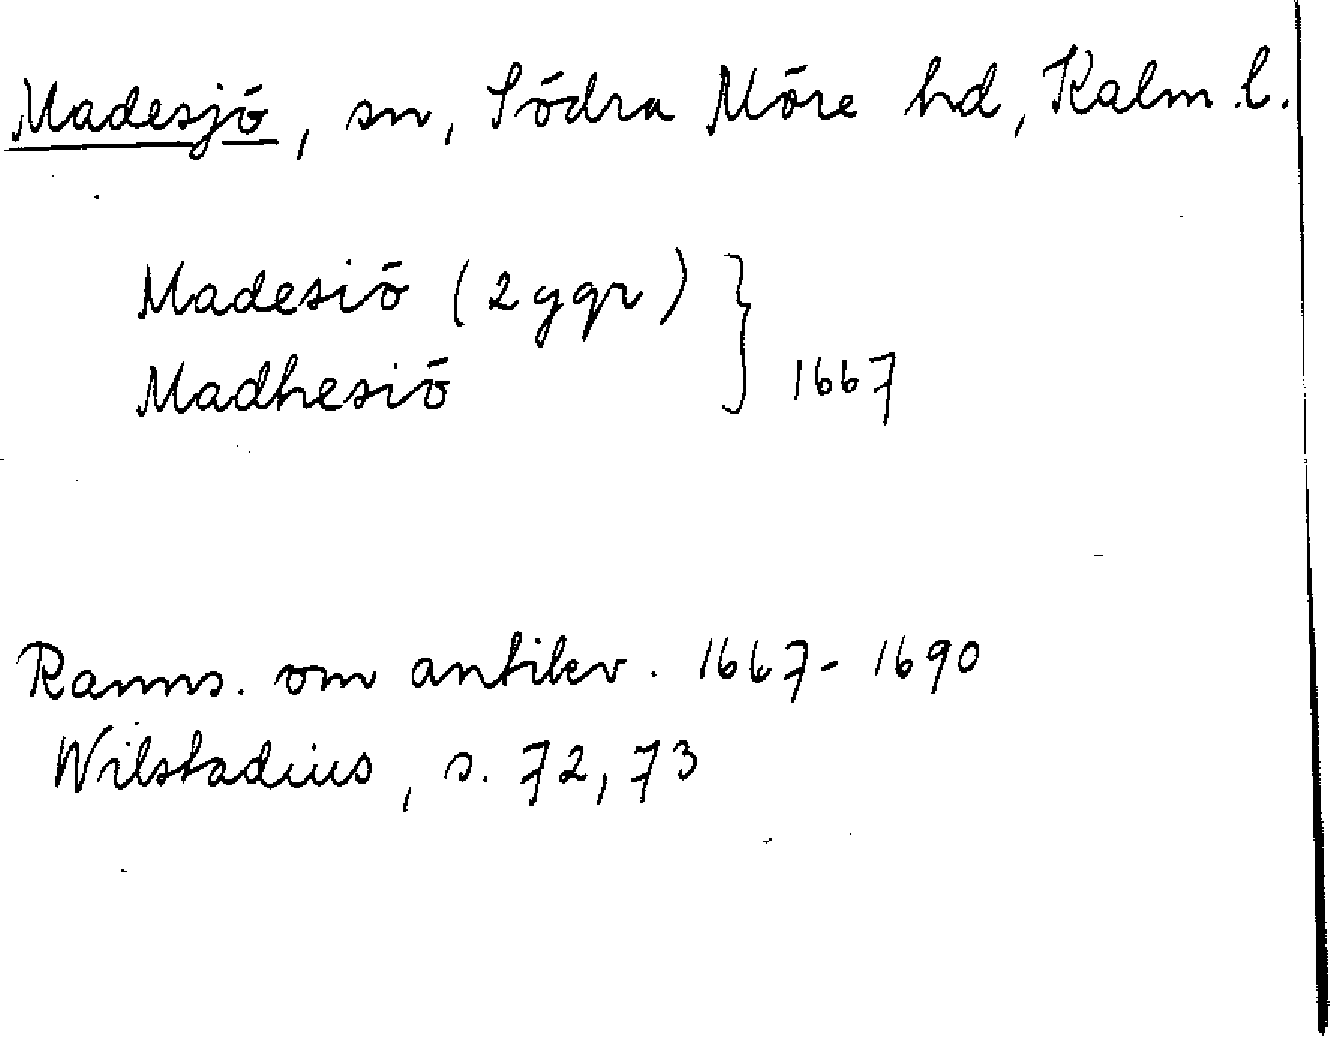 Madesjö, sn, Södra Möre hd, Kalm. l.
Madesiö (2 ggr) }
Madhesiö } 1667
Ranns. om antikv. 1667-1690
Wilstadius, s. 72, 73